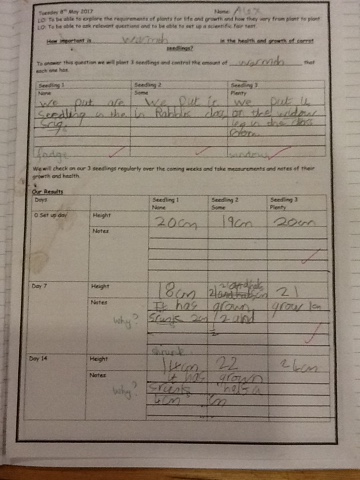 Tuesday 9th May 2017 Name: Alex
LO: To be able to explore the requirements of plants for life and growth and how they vary from plant to plant
LO: To be able to ask relevant questions and to be able to set up a scientific fair test.
How important is warmth in the health and growth of carrot
seedlings?
To answer this question we will plant 3 seedlings and control the amount of warmth that
each one has.
Seedling 1 Seedling 2 Seedling 3
None Some Plenty
we put are We Put it we put it
Seedling in the in Rabbits class on the window
in the class
Room
fridge window
We will check on our 3 seedlings regularly over the coming weeks and take measurements and notes of their
growth and health.
Our Results
Days Seedling 1 Seedling 2 Seedling 3
None Some Plenty
0 Set up day Height 20cm 19cm 20cm
Notes
Day 7 Height 18cm 21 21
Notes It has grown grow 1cm
why? 2cm 2 and
½
shrunk
Day 14 Height 14cm 22 26cm
Notes it has grown
why? half a
6cm cm